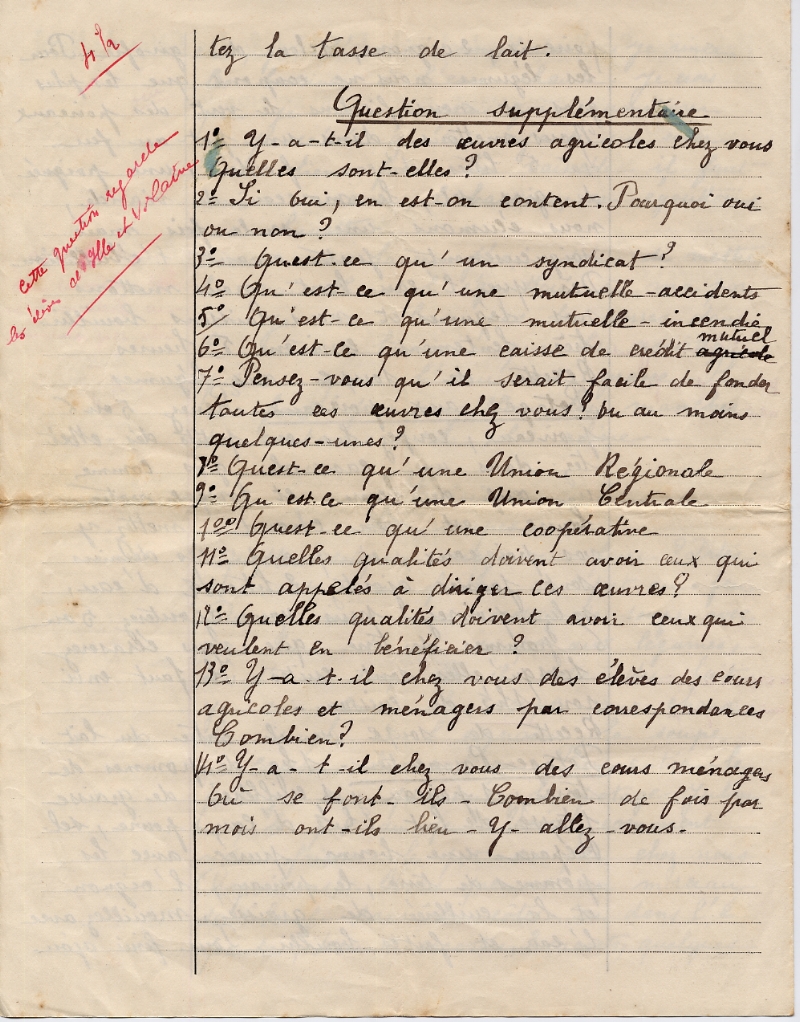 4/2
tez la tasse de lait.
Question supplémentaire
1º= Y-a-t-il des œuvres agricoles chez vous
Quelles sont-elles ?
2º= Si oui, en est-on content. Pourquoi oui
ou non ?
3º Quest-ce qu'un syndicat ?
4º Qu'est-ce qu'une mutuelle-accidents
5º/ Qu'est-ce qu'une mutuelle-incendie
mutuel
6º Qu'est-ce qu'une caisse de crédit agricole
7º Pensez-vous qu'il serait facile de fonder
toutes ces œuvres chez vous ? ou au moins
quelques-unes ?
8º= Quest-ce qu'une Union Régionale
9º= Qu'est-ce qu'une Union Centrale
10º Quest-ce qu'une coopérative
11º Quelles qualités doivent avoir ceux qui
sont appelés à diriger ces œuvres ?
12º= Quelles qualités doivent avoir ceux qui
veulent en bénéficier ?
13º= Y-a-t-il chez vous des élèves des cours
agricoles et ménagers par correspondances
Combien ?
14º= Y-a-t-il chez vous des cours ménagers
Où se font-ils - Combien de fois par
mois ont-ils lieu - Y-allez-vous.
Cette question regarde
les et